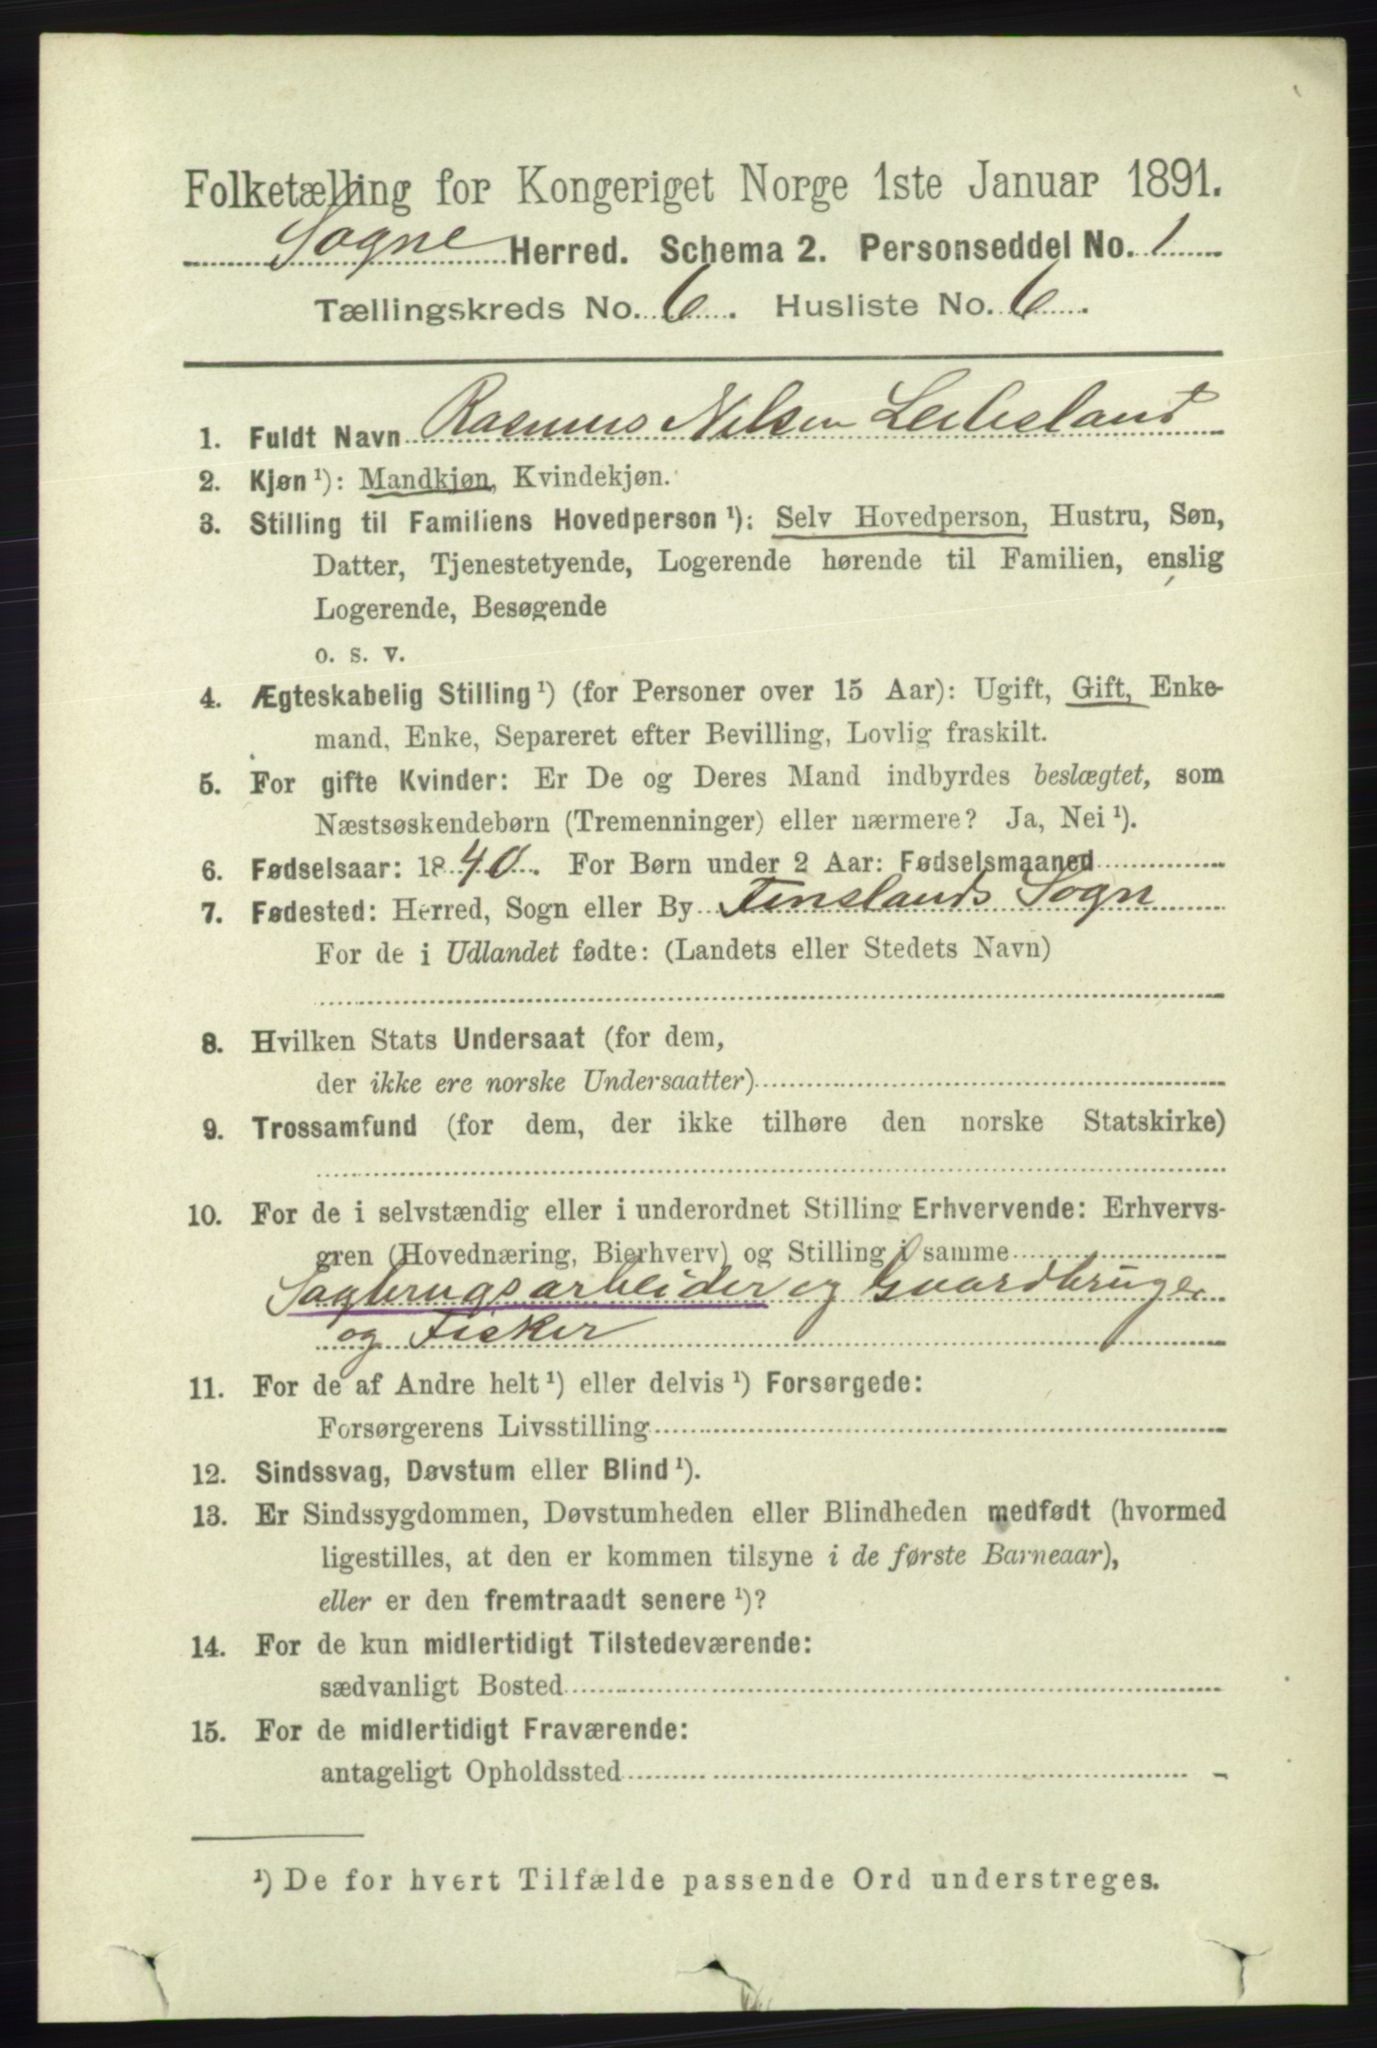 Folketælling for Kongeriget Norge 1ste Januar 1891.
Sogne Herred. Schema 2. Personseddel No. 1
Tællingskreds No. 6. Husliste No. 6.
1. Fuldt Navn Rasmus Nilsen
2. Kjøn ¹): Mandkjøn, Kvindekjøn.
3. Stilling til Familiens Hovedperson ¹): Selv Hovedperson, Hustru, Søn,
Datter, Tjenestetyende, Logerende hørende til Familien, enslig
Logerende, Besøgende
o. s. v.
4. Ægteskabelig Stilling ¹) (for Personer over 15 Aar): Ugift, Gift, Enke-
mand, Enke, Separeret efter Bevilling, Lovlig fraskilt.
5. For gifte Kvinder: Er De og Deres Mand indbyrdes beslægtet, som
Næstsøskendebørn (Tremenninger) eller nærmere? Ja, Nei ¹).
6. Fødselsaar: 1840. For Børn under 2 Aar: Fødselsmaaned
7. Fødested: Herred, Sogn eller By Finslands Sogn
For de i Udlandet fødte: (Landets eller Stedets Navn)
8. Hvilken Stats Undersaat (for dem,
der ikke ere norske Undersaatter)
9. Trossamfund (for dem, der ikke tilhøre den norske Statskirke)
10. For de i selvstændig eller i underordnet Stilling Erhvervende: Erhvervs-
gren (Hovednæring, Bierhverv) og Stilling i samme
Sagbrugsarbeider og Gaardbruger
og Fisker
11. For de af Andre helt ¹) eller delvis ¹) Forsørgede:
Forsørgerens Livsstilling
12. Sindssvag, Døvstum eller Blind ¹).
13. Er Sindssygdommen, Døvstumheden eller Blindheden medfødt (hvormed
ligestilles, at den er kommen tilsyne i de første Barneaar),
eller er den fremtraadt senere ¹)?
14. For de kun midlertidigt Tilstedeværende:
sædvanligt Bosted
15. For de midlertidigt Fraværende:
antageligt Opholdssted
¹) De for hvert Tilfælde passende Ord understreges.